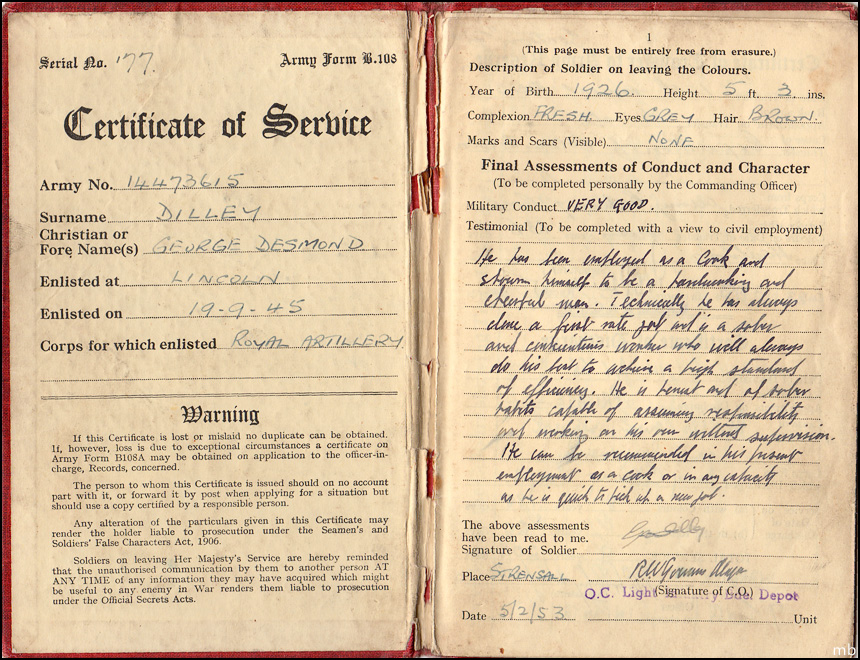 Serial No. 177. Army Form B.108
Certificate of Service
Army No. 14473615
Surname DILLEY
Christian or
Fore Name(s) GEORGE DESMOND
Enlisted at LINCOLN
Enlisted on 19-9-45
Corps for which enlisted ROYAL ARTILLERY
Warning
If this Certificate is lost or mislaid no duplicate can be obtained.
If, however, loss is due to exceptional circumstances a certificate on
Army Form B108A may be obtained on application to the officer-in-
charge, Records, concerned.
The person to whom this Certificate is issued should on no account
part with it, or forward it by post when applying for a situation but
should use a copy certified by a responsible person.
Any alteration of the particulars given in this Certificate may
render the holder liable to prosecution under the Seamen's and
Soldiers' False Characters Act, 1906.
Soldiers on leaving Her Majesty's Service are hereby reminded
that the unauthorised communication by them to another person AT
ANY TIME of any information they may have acquired which might
be useful to any enemy in War renders them liable to prosecution
under the Official Secrets Acts.
1
(This page must be entirely free from erasure.)
Description of Soldier on leaving the Colours.
Year of Birth 1926. Height 5 ft. 3 ins.
Complexion FRESH. Eyes GREY Hair BROWN.
Marks and Scars (Visible) NONE
Final Assessments of Conduct and Character
(To be completed personally by the Commanding Officer)
Military Conduct VERY GOOD.
Testimonial (To be completed with a view to civil employment)
He has been employed as a Cook and
shown himself to be a hardworking and
cheerful man. Technically he has always
done a first rate job and is a sober
and conscientious worker who will always
do his best to achieve a high standard
of efficiency. He is honest and of sober
habits capable of assuming responsibility
and working on his own without supervision.
He can be recommended in his present
employment as a cook or in any capacity
as he is quick to pick up a new job.
The above assessments
have been read to me.
Signature of Soldier
Place STRENSALL
(Signature of C.O.)
O.C. Light Depot
Date 5/2/53 Unit
mb